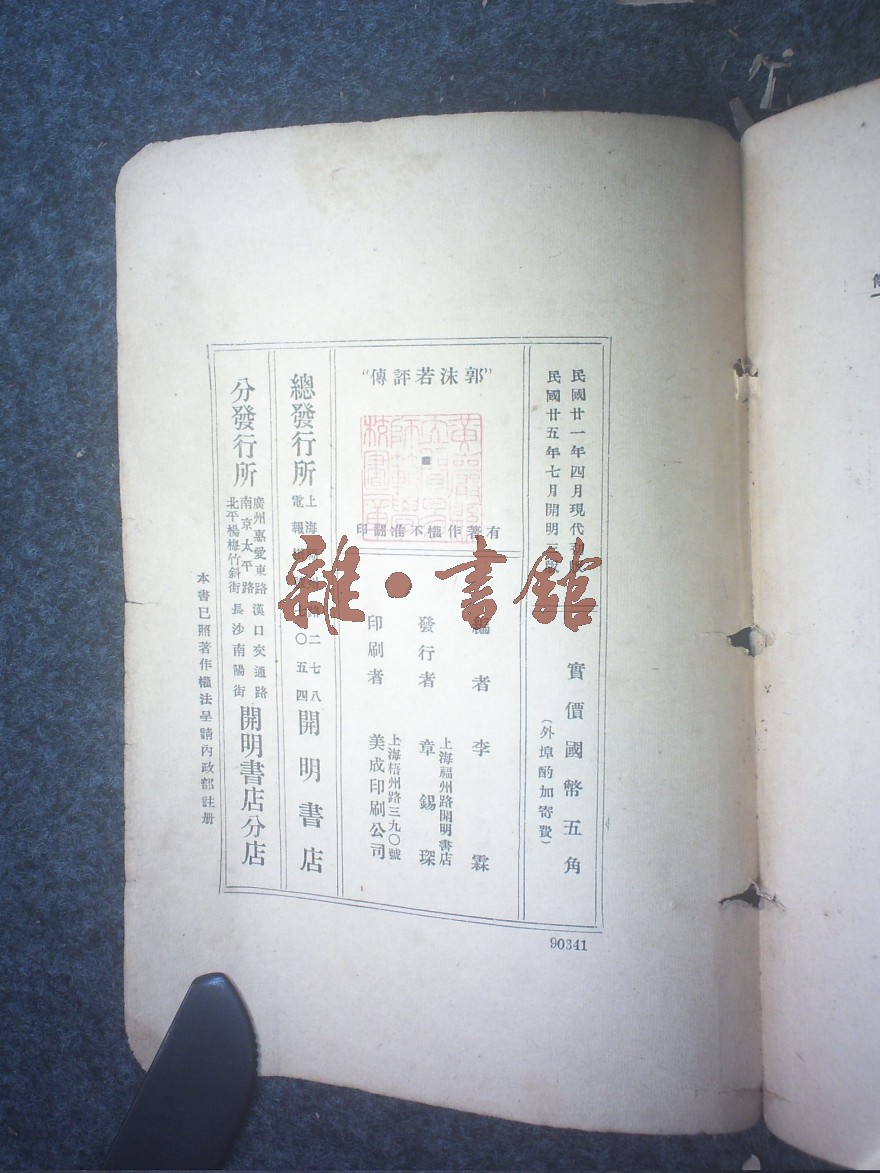 民國廿一年四月現代初版
民國廿五年七月開明三版
實價國幣五角
（外埠酌加寄費）
"郭沫若評傳"
有著作權不准翻印
編者 李霖
發行者 章錫琛
上海福州路開明書店
印刷者 美成印刷公司
上海梧州路三九〇號
總發行所
上海 路二七八
電報 〇五四
開明書店
分發行所
廣州惠愛東路 漢口交通路
南京太平路
北平楊梅竹斜街 長沙南陽街
開明書店分店
本書已照著作權法呈請內政部註册
90341
雜·書館